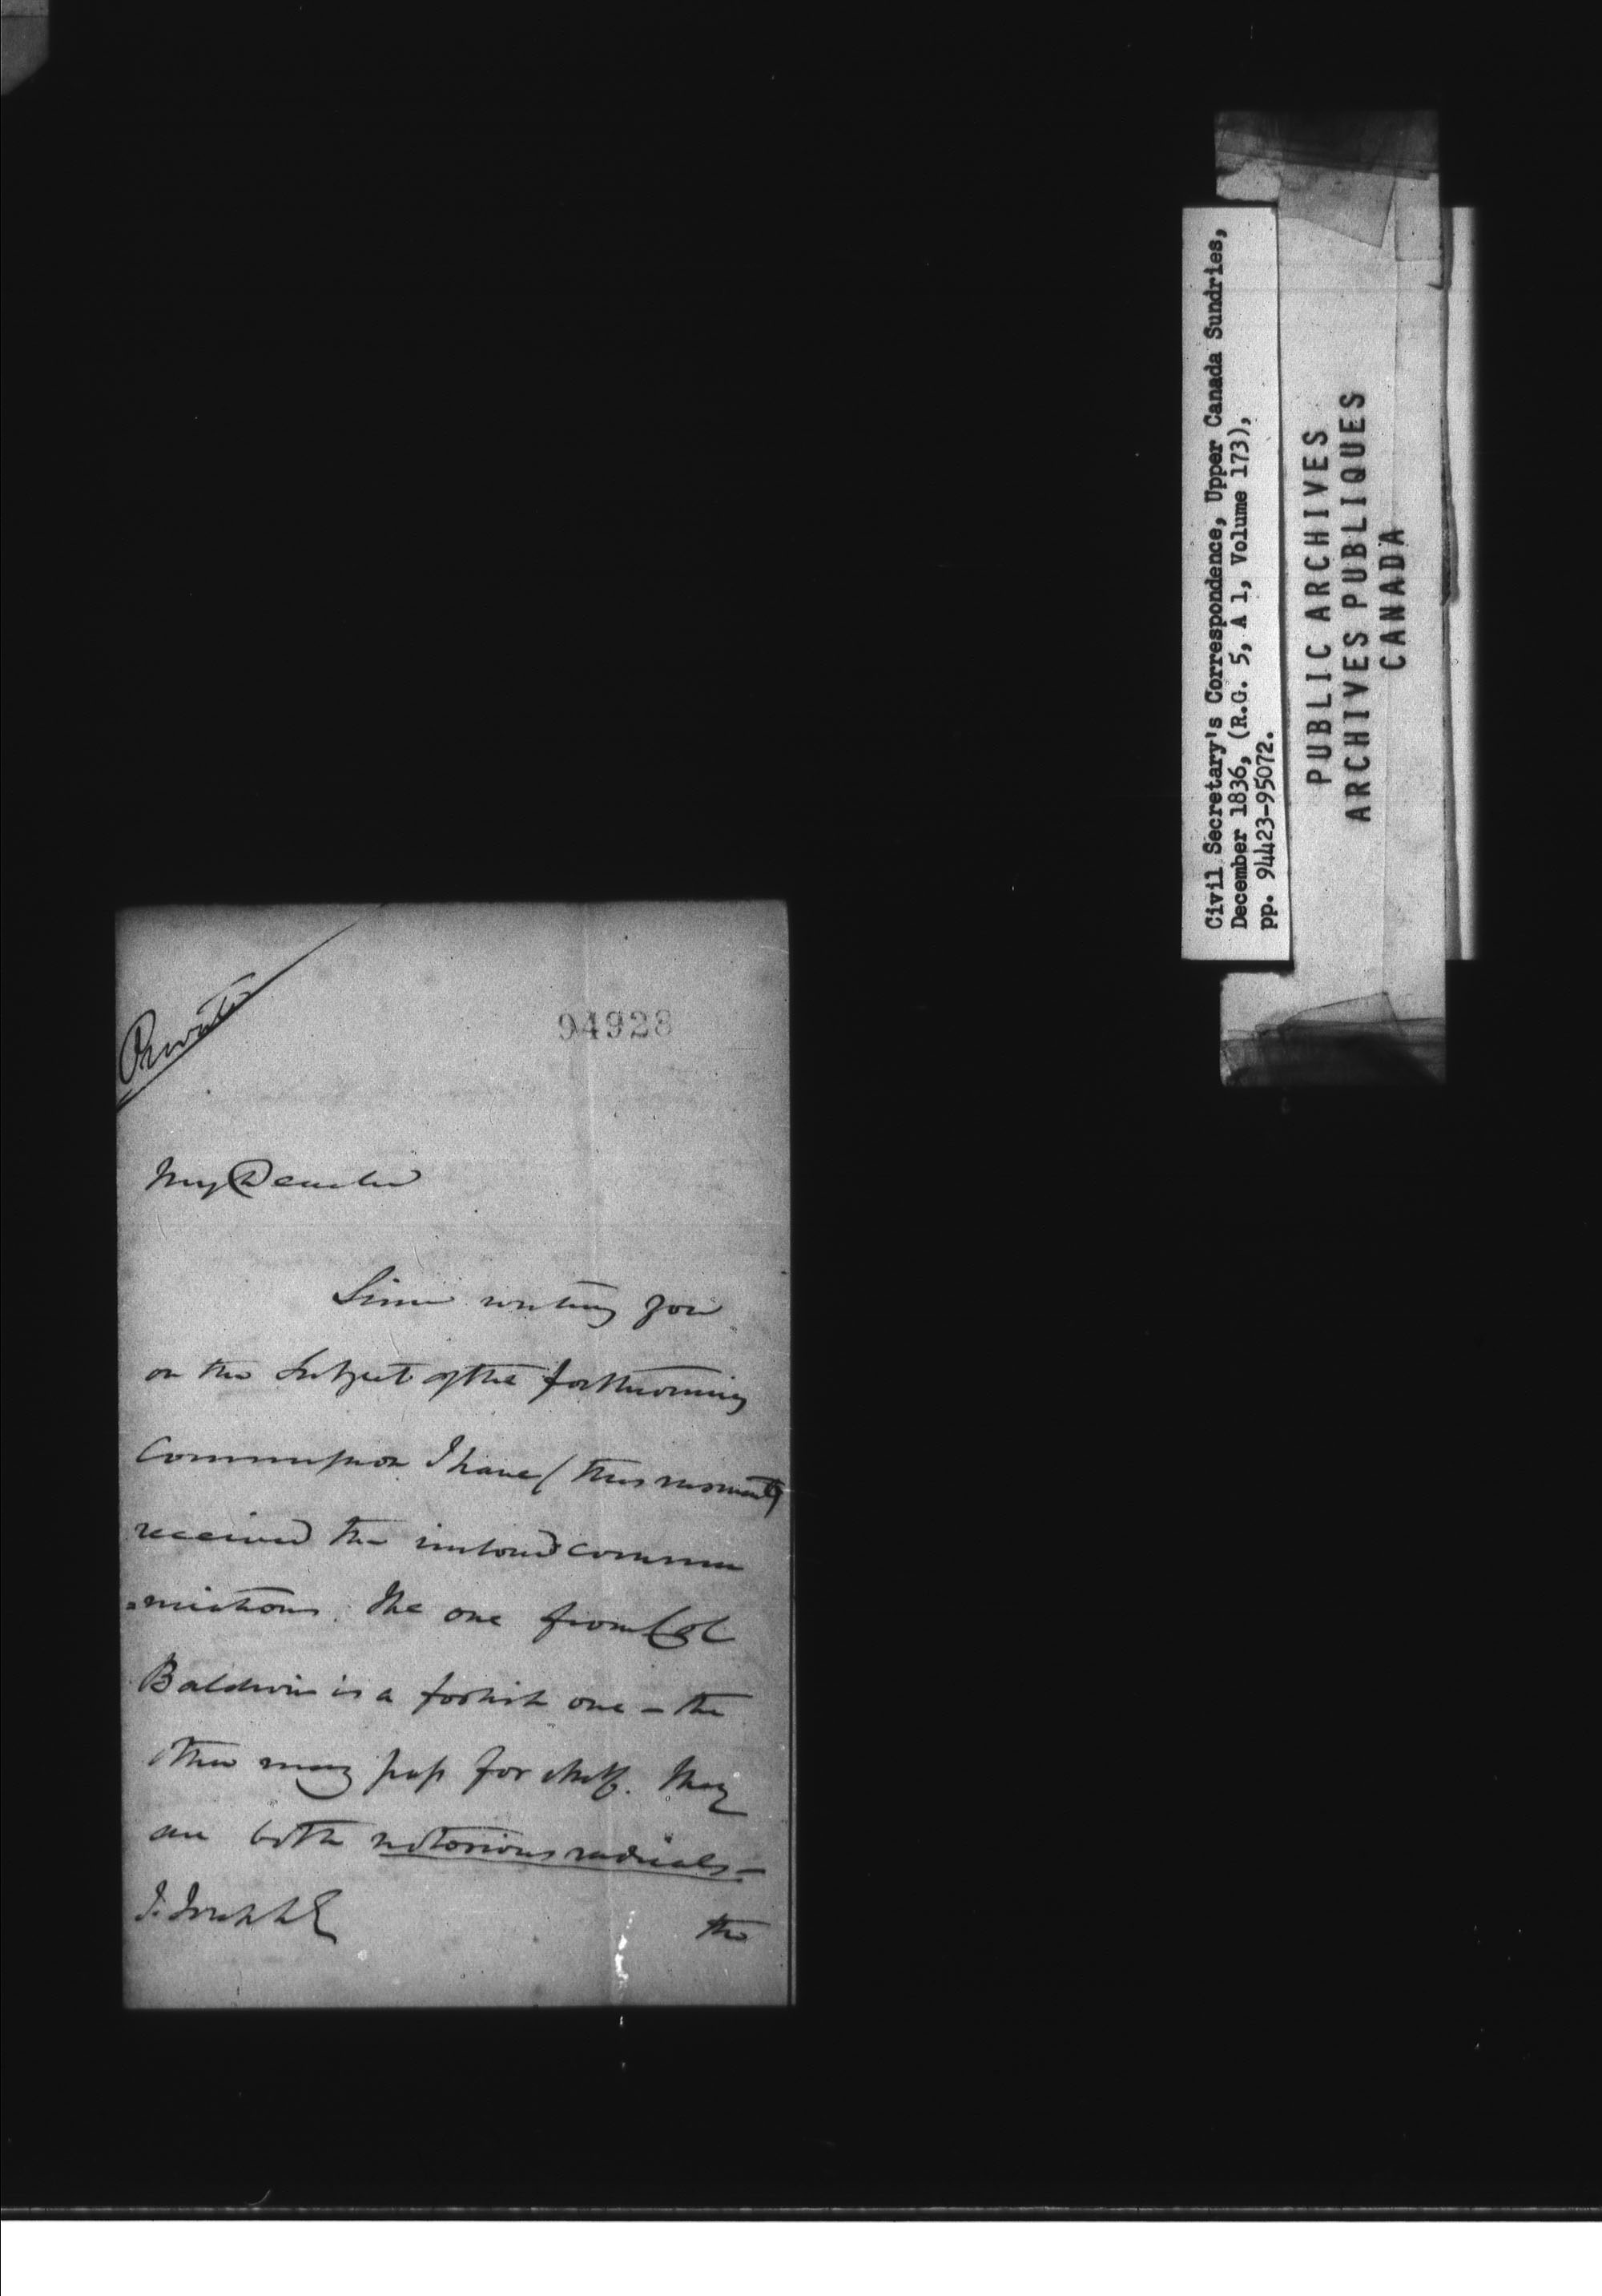 Private
94928
My Dear Sir
Since writing you
on the Subject of the forthcoming
Commission I have (this moment)
received the inclosed commu
=nications. The one from Col
Baldwin is a foolish one – the
other may pass for itself. They
are both notorious radicals –
J. Joseph Es
the
Civil Secretary's Correspondence, Upper Canada Sundries,
December 1836, (R.G. 5, A 1, Volume 173),
pp. 94423-95072.
PUBLIC ARCHIVES
ARCHIVES PUBLIQUES
CANADA